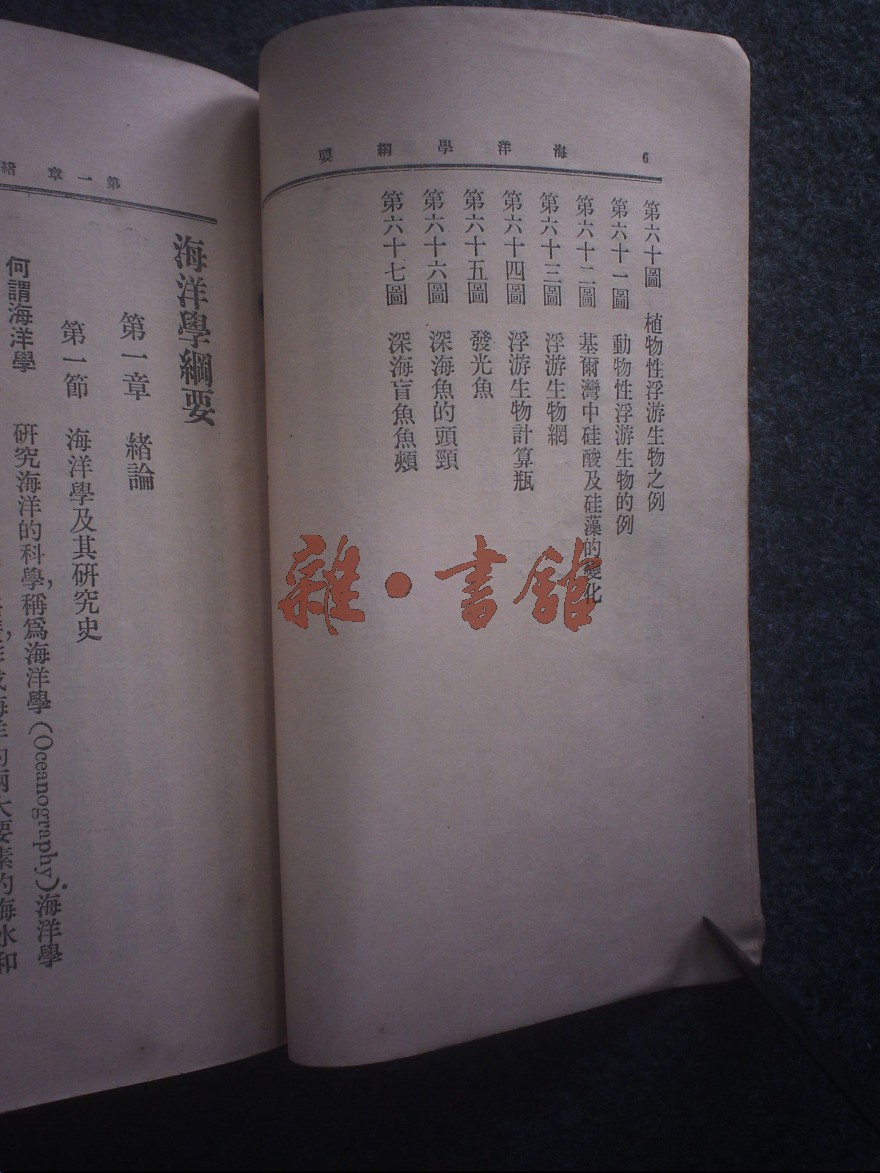 海洋學綱要 6
第六十圖 植物性浮游生物之例
第六十一圖 動物性浮游生物的例
第六十二圖 基爾灣中硅酸及硅藻的變化
第六十三圖 浮游生物網
第六十四圖 浮游生物計算瓶
第六十五圖 發光魚
第六十六圖 深海魚的頭頸
第六十七圖 深海盲魚魚頰
第一章 緒
海洋學綱要
第一章 緒論
第一節 海洋學及其研究史
何謂海洋學 研究海洋的科學,稱爲海洋學(Oceanography)。海洋學
成海洋的兩大要素的海水和
雜·書館